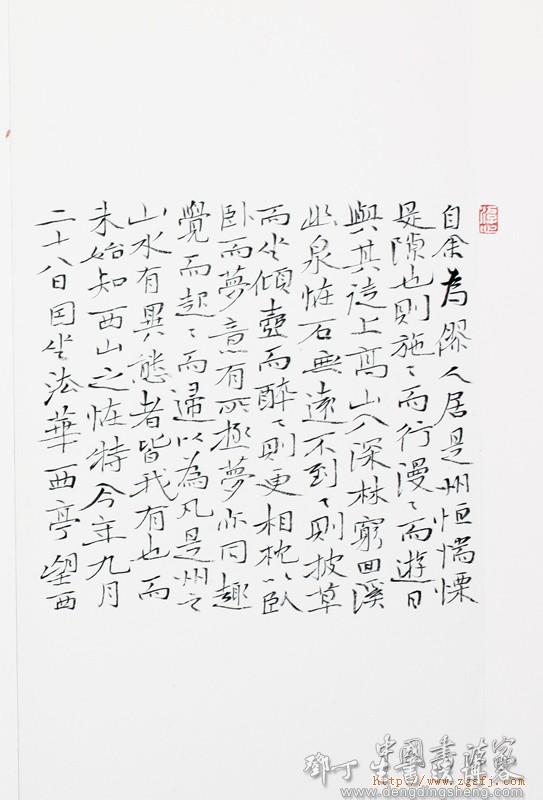 自余為僇人居是州恒惴慄
是隙也則施〻而行漫〻而遊日
與其徒上高山入深林窮回溪
幽泉怪石無遠不到〻則披草
而坐傾壺而醉〻則更相枕以臥
臥而夢意有所極夢亦同趣
覺而起〻而歸以為凡是州之
山水有異態者皆我有也而
未始知西山之怪特今年九月
二十八日因坐法華西亭望西
中國書法家
鄧丁生書法
http://www.zgsfj.com
www.dengdingsheng.com